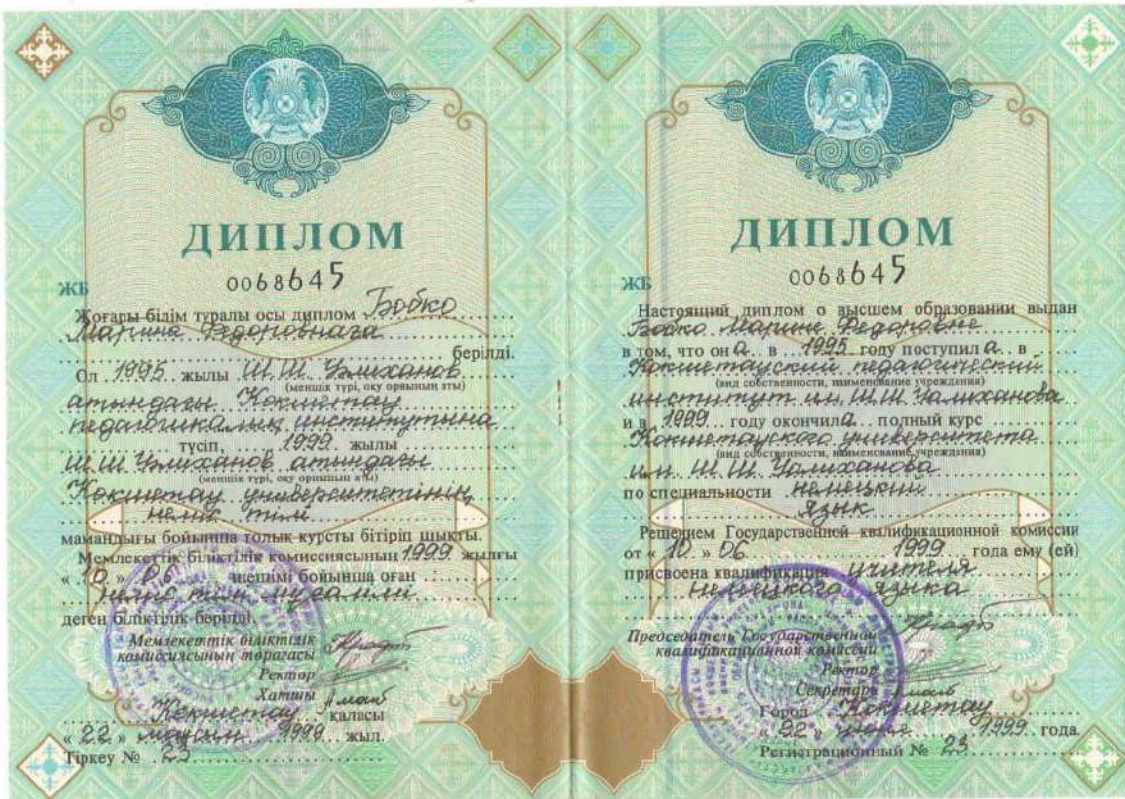 ДИПЛОМ
ЖБ 0068645
Жоғары білім туралы осы диплом Бобко
Марина Федоровнаға
берілді.
Ол 1995 жылы Ш.Ш. Уәлиханов
(меншік түрі, оқу орнының аты)
атындағы Көкшетау
педагогикалық институтына
түсіп, 1999 жылы
Ш.Ш. Уәлиханов атындағы
(меншік түрі, оқу орнының аты)
Көкшетау университетінің
неміс тілі
мамандығы бойынша толық курсты бітіріп шықты.
Мемлекеттік біліктілік комиссиясының 1999 жылғы
« 10 » 06 шешімі бойынша оған
неміс тілі мұғалімі
деген біліктілік берілді.
Мемлекеттік біліктілік
комиссиясының төрағасы
Ректор
Хатшы
Көкшетау қаласы
« 22 » маусым 1999 жыл.
Тіркеу № 23
ДИПЛОМ
ЖБ 0068645
Настоящий диплом о высшем образовании выдан
Бобко Марине Федоровне
в том, что он а в 1995 году поступил а в
Кокшетауский педагогический
(вид собственности, наименование учреждения)
институт им. Ш.Ш. Уалиханова
и в 1999 году окончил а полный курс
Кокшетауского университета
(вид собственности, наименование учреждения)
им. Ш.Ш. Уалиханова
по специальности немецкий
язык
Решением Государственной квалификационной комиссии
от « 10 » 06 1999 года ему (ей)
присвоена квалификация учителя
немецкого языка
Председатель Государственной
квалификационной комиссии
Ректор
Секретарь
Город Кокшетау
« 22 » июня 1999 года.
Регистрационный № 23